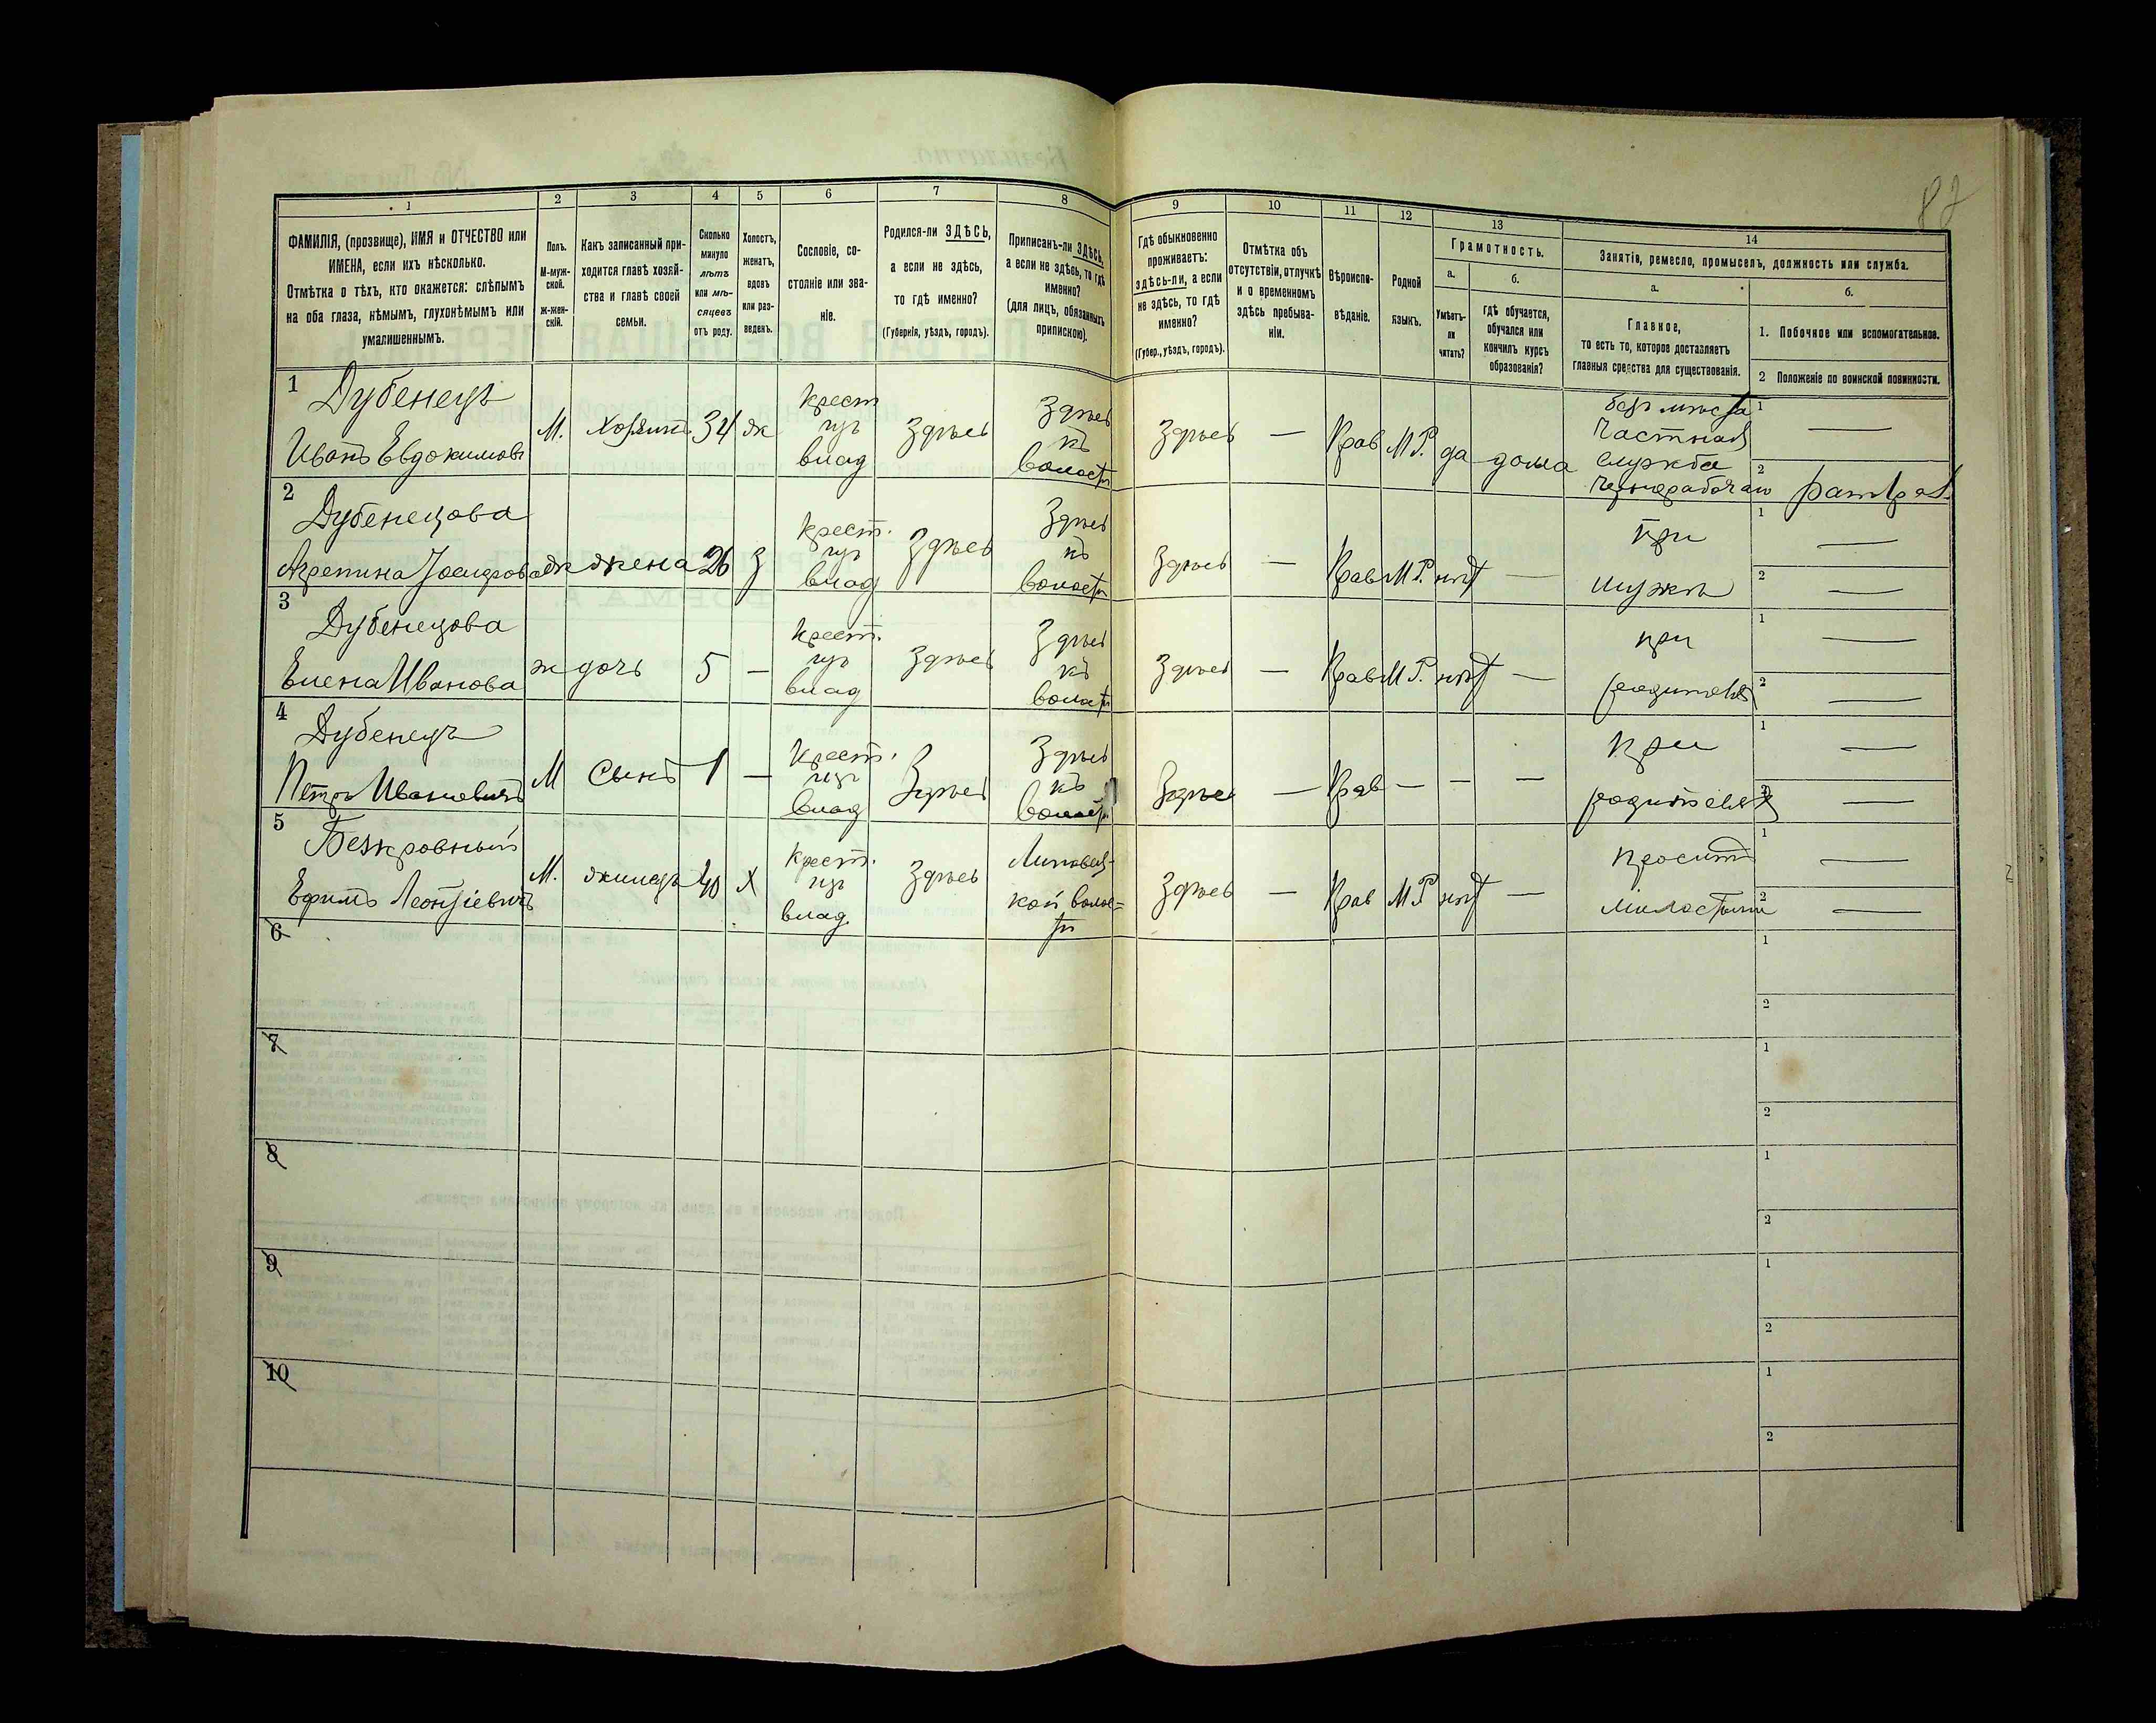 87
1 2 3 4 5 6 7 8 9 10 11 12 13 14
ФАМИЛІЯ, (прозвище), ИМЯ и ОТЧЕСТВО или
ИМЕНА, если ихъ нѣсколько.
Отмѣтка о тѣхъ, кто окажется: слѣпымъ
на оба глаза, нѣмымъ, глухонѣмымъ или
умалишеннымъ.
Полъ.
М-муж-
ской.
Ж-жен-
скій.
Какъ записанный при-
ходится главѣ хозяй-
ства и главѣ своей
семьи.
Сколько
минуло
лѣтъ
или мѣ-
сяцевъ
отъ роду.
Холостъ,
женатъ,
вдовъ
или раз-
веденъ.
Сословіе, со-
стояніе или зва-
ніе.
Родился-ли ЗДѢСЬ,
а если не здѣсь,
то гдѣ именно?
(Губернія, уѣздъ, городъ).
Приписанъ-ли ЗДѢСЬ,
а если не здѣсь, то гдѣ
именно?
(для лицъ, обязанныхъ
припискою).
Гдѣ обыкновенно
проживаетъ:
здѣсь-ли, а если
не здѣсь, то гдѣ
именно?
(Губер., уѣздъ, городъ).
Отмѣтка объ
отсутствіи, отлучкѣ
и о временномъ
здѣсь пребыва-
ніи.
Вѣроиспо-
вѣданіе.
Родной
языкъ.
Грамотность.
а.
Умѣетъ-
ли
читать?
б.
Гдѣ обучается,
обучался или
кончилъ курсъ
образованія?
Занятіе, ремесло, промыселъ, должность или служба.
а.
Главное,
то есть то, которое доставляетъ
главныя средства для существованія.
б.
1. Побочное или вспомогательное.
2 Положеніе по воинской повинности.
1 Дубенецъ
Иванъ Евдокимовъ
М. Хозяинъ 34 ж
Крест
изъ
влад
Здѣсь
Здѣсь
къ
волости
Здѣсь — Прав М.Р. да дома
безъ мѣста
Частная
служба
Чернорабочаго
1 —
2
2 Дубенецова
Агрепина
ж жена 26 З
Крест.
изъ
влад
Здѣсь
Здѣсь
къ
волости
Здѣсь — Прав М.Р. нѣт —
При
мужѣ
1 —
2 —
3 Дубенецова
Елена Иванова
ж дочь 5 —
Крест.
изъ
влад
Здѣсь
Здѣсь
къ
волости
Здѣсь — Прав М.Р. нѣт —
при
родителях
1 —
2 —
4 Дубенецъ
Петръ Ивановичъ
М Сынъ 1 —
Крест.
изъ
влад
Здѣсь
Здѣсь
къ
волости
Здѣсь — Прав — — —
При
родителях
1 —
2 —
5 Безкровный
Ефимъ Леонтіевичъ
М. жилецъ 40 Х
Крест.
изъ
влад.
Здѣсь
кой волос=
ти
Здѣсь — Прав М.Р нѣт —
Просит
милостыни
1 —
2 —
6
1
2
7
1
2
8
1
2
9
1
2
10
1
2